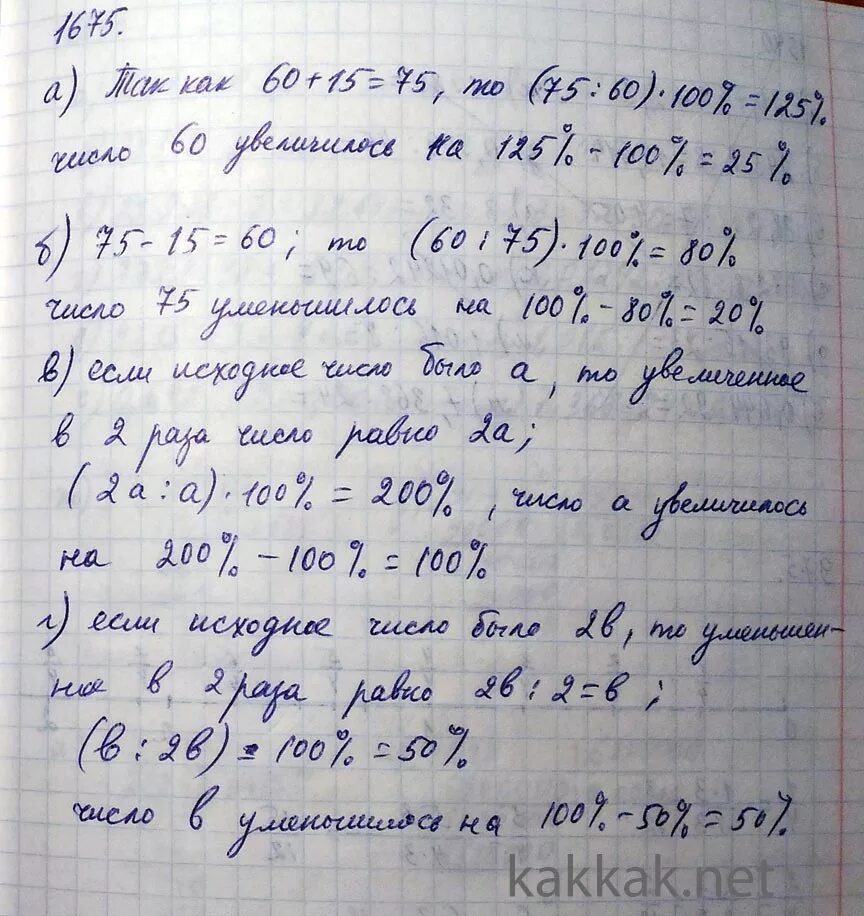 1675.
а) Так как 60+15=75, то (75:60)·100%=125%
число 60 увеличилось на 125%-100%=25%
б) 75-15=60; то (60:75)·100%=80%
число 75 уменьшилось на 100%-80%=20%
в) если исходное число было а, то увеличенное
в 2 раза число равно 2а;
(2а:а)·100%=200%, число а увеличилось
на 200%-100%=100%
г) если исходное число было 2в, то уменьшен-
ное в 2 раза равно 2в:2=в;
(в:2в)-100%=50%
число в уменьшилось на 100%-50%=50%
kakkak.net